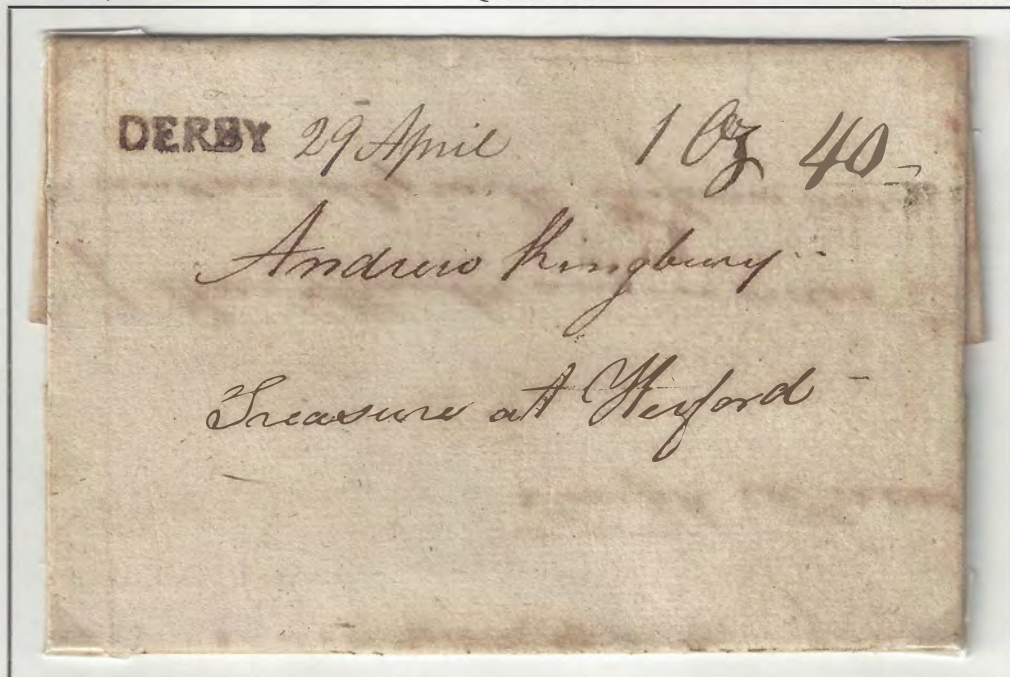 DERBY 29 April 1 Oz 40
Andrew Kingbury
Treasure at Herford